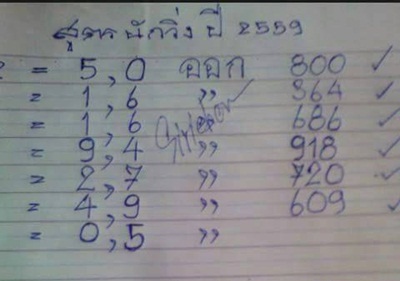 สูตรนักวิ่ง ปี 2559
= 5,0 ออก 800 ✓
= 1,6 " 364 ✓
= 1,6 " 686 ✓
= 9,4 " 918 ✓
= 2,7 " 720 ✓
= 4,9 " 609 ✓
= 0,5 "